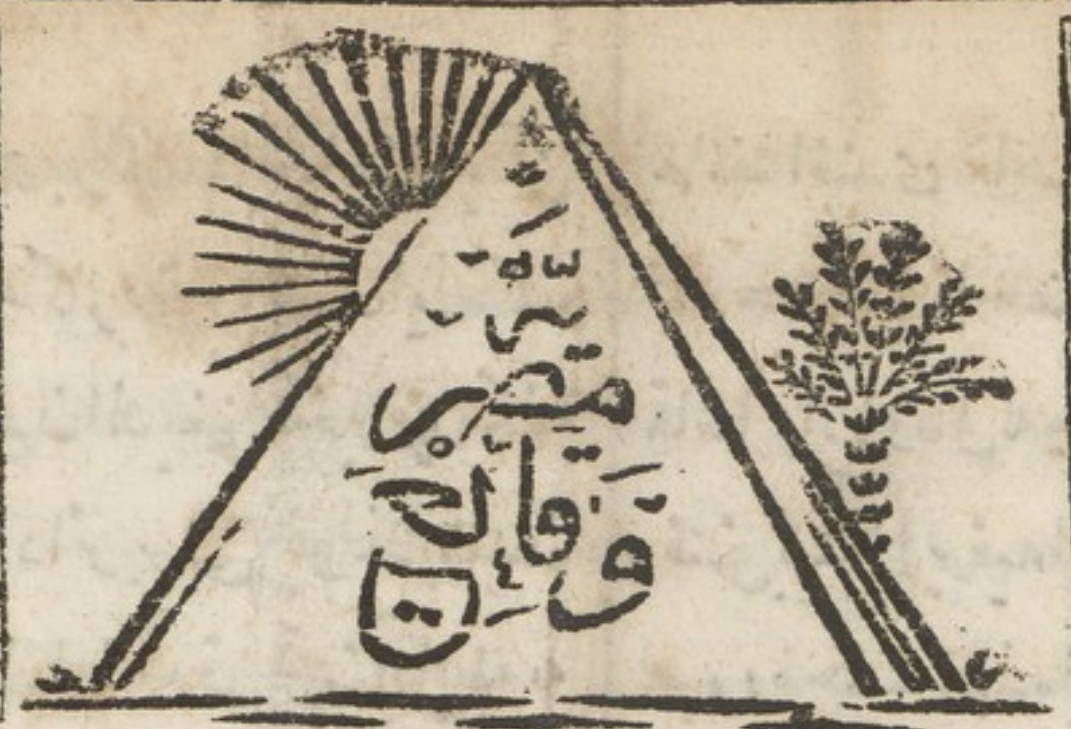 وقائع مصريه